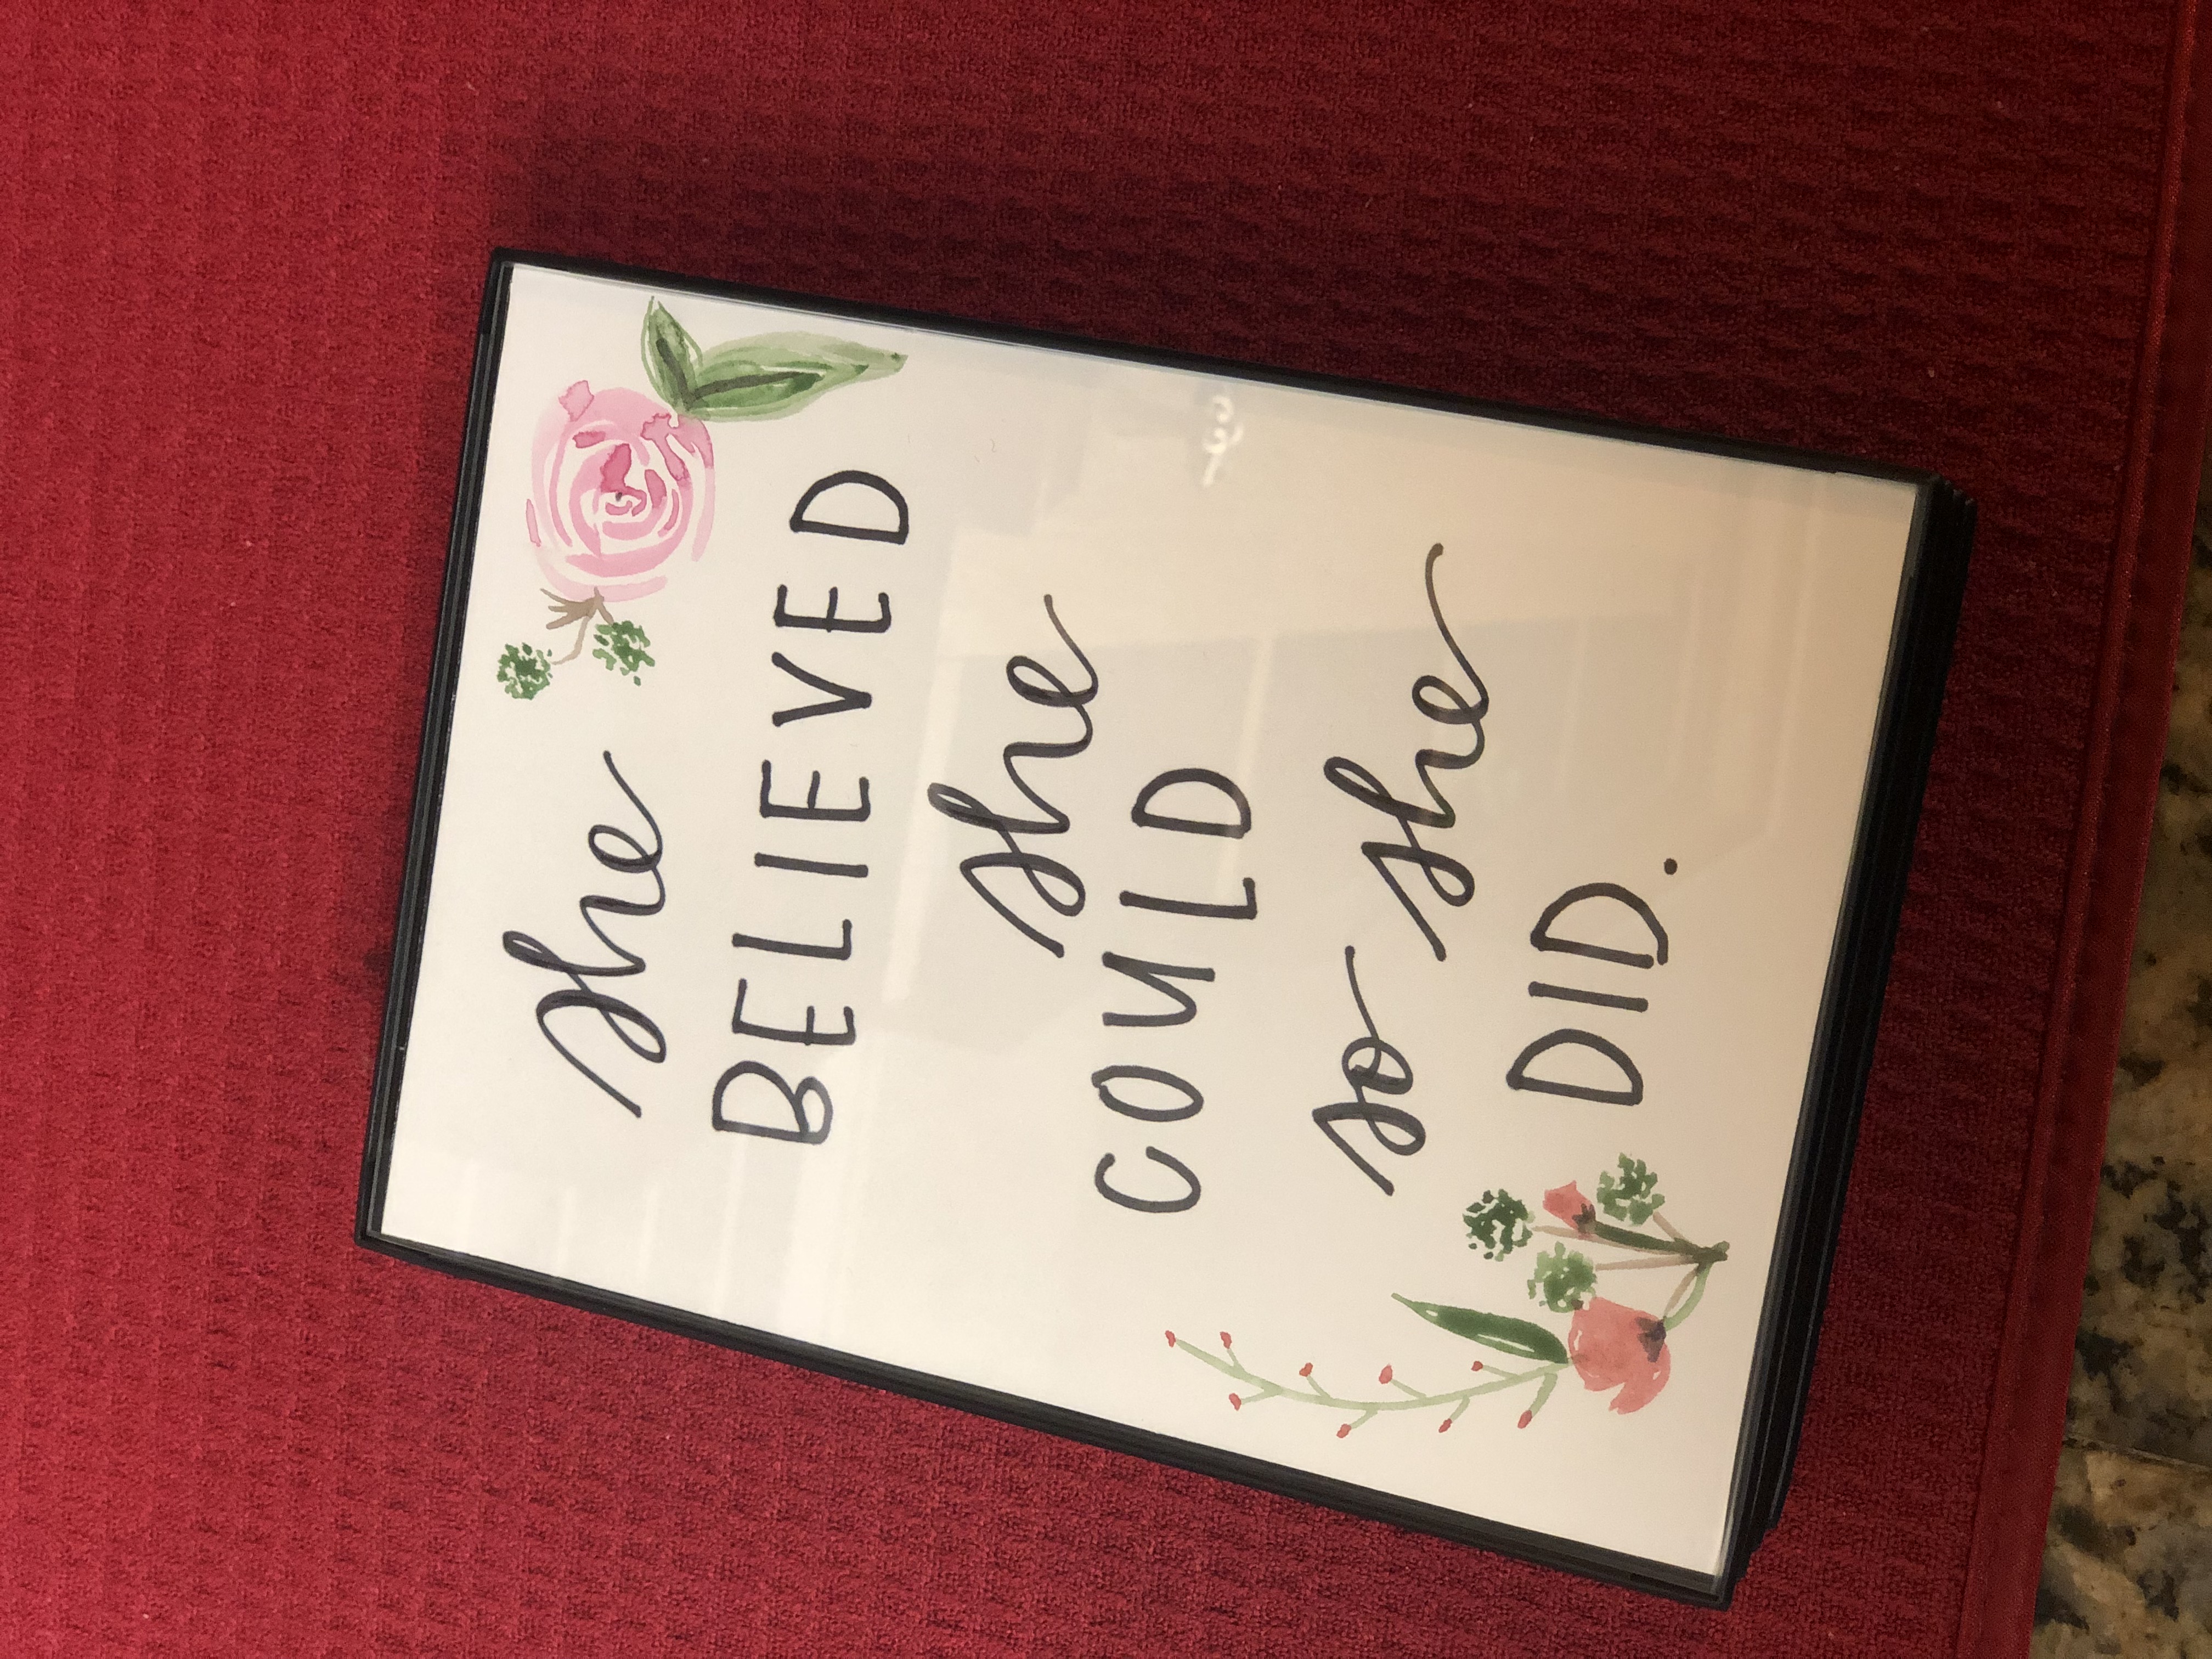 she
BELIEVED
she
COULD
so she
DID.